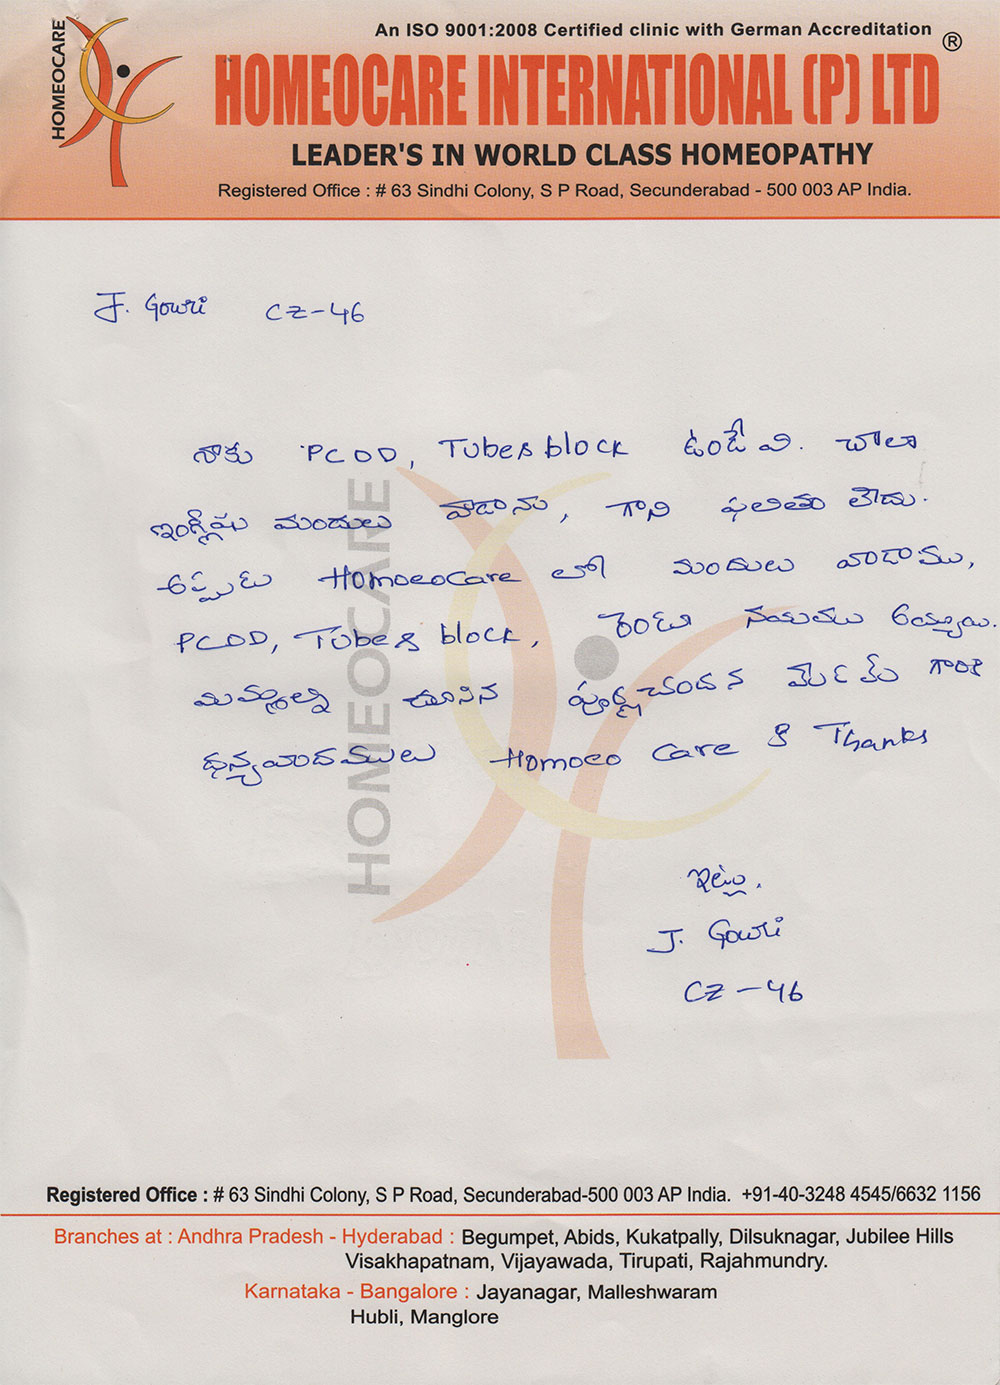 An ISO 9001:2008 Certified clinic with German Accreditation
HOMEOCARE
HOMEOCARE INTERNATIONAL (P) LTD ®
LEADER'S IN WORLD CLASS HOMEOPATHY
Registered Office : # 63 Sindhi Colony, S P Road, Secunderabad - 500 003 AP India.
J. Gowri CZ-46
నాకు PCOD, Tubes block ఉండేవి. చాలా
ఇంగ్లీషు మందులు వాడాను, గాని ఫలితం లేదు.
అప్పుడు Homoeocare లో మందులు వాడాము,
PCOD, Tubes block, రెండు నయము అయ్యాయి.
మిమ్మల్ని చూసిన పూర్ణచందన మేడమ్ గారికి
ధన్యవాదములు Homoeo care కి Thanks
HOMEOCARE
ఇట్లు.
J. Gowri
CZ-46
Registered Office : # 63 Sindhi Colony, S P Road, Secunderabad-500 003 AP India. +91-40-3248 4545/6632 1156
Branches at : Andhra Pradesh - Hyderabad : Begumpet, Abids, Kukatpally, Dilsuknagar, Jubilee Hills
Visakhapatnam, Vijayawada, Tirupati, Rajahmundry.
Karnataka - Bangalore : Jayanagar, Malleshwaram
Hubli, Manglore